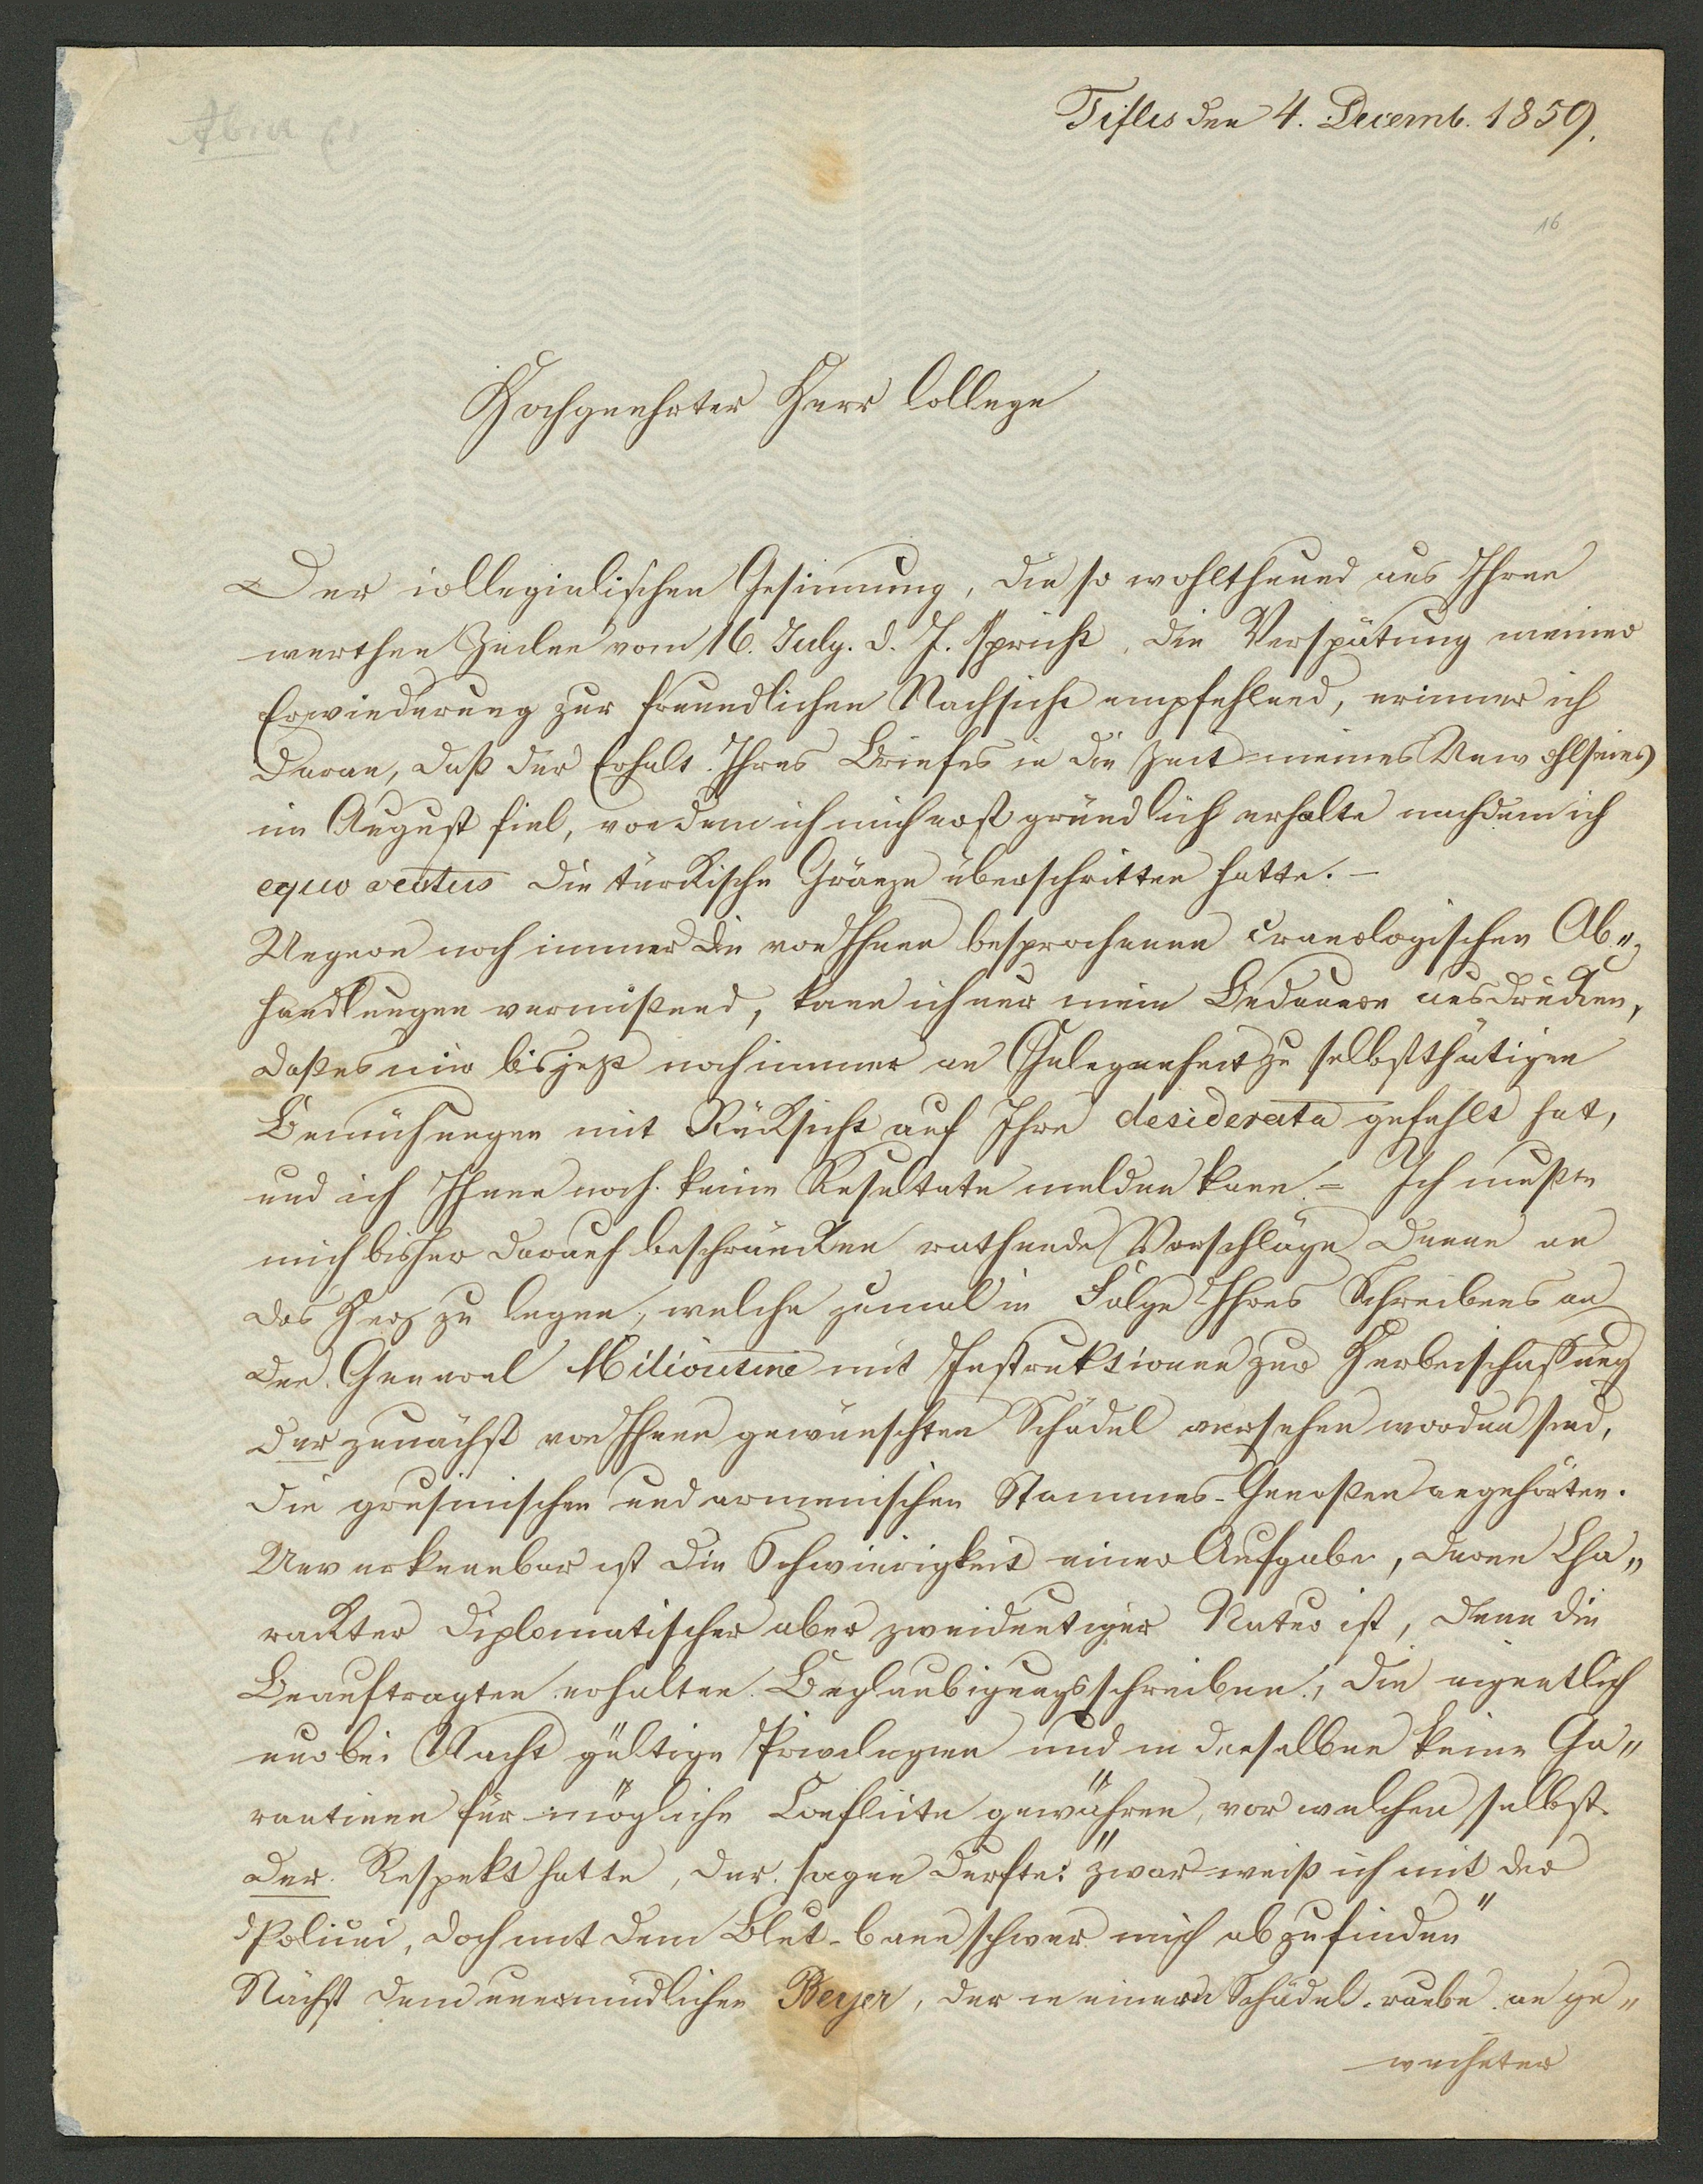 Abich
Tiflis den 4. Decemb. 1859.
16
Hochgeehrter Herr College
Der collegialischen Gesinnung, die so wohlthuend aus Ihren
werthen Zeilen vom 16. July. d. J. spricht, die Verspätung meiner
Erwiederung zur freundlichen Nachsicht empfehlend, erinner ich
daran, daß der Erhalt Ihres Briefes in die Zeit meines Unwohlseins
im August fiel, von dem ich mich erst gründlich erholte nachdem ich
equo vectus die türkische Gränze überschritten hatte. –
Ungern noch immer die von Ihnen besprochenen craneologischen Ab„
handlungen vermißend, kann ich nur mein Bedauern ausdrücken,
daß es mir bis jezt noch immer an Gelegenheit zu selbstthätigen
Bemühungen mit Rücksicht auf Ihre desiderata gefehlt hat,
und ich Ihnen noch keine Resultate melden kann. – Ich mußte
mich bisher darauf beschräncken rathende Vorschläge denen an
das Herz zu legen, welche zumal in Folge Ihres Schreibens an
den General Milioutine mit Instruktionen zur Herbeischaffung
der zunächst von Ihnen gewünschten Schädel versehen worden sind,
die grusinischen und armenischen Stammes-Genoßen angehörten.
Unverkennbar ist die Schwierigkeit einer Aufgabe, deren Cha„
rackter diplomatischer aber zweideutiger Natur ist, denn die
Beauftragten erhalten Beglaubigungsschreiben, die eigentlich
nur bei Nacht gültige Privilegien und in denselben keine Ga„
rantieen für mögliche Conflicte gewähren, vor welchen selbst
der Respekt hatte, der sagen durfte: "zwar weiß ich mit der
Polizei, doch mit dem Blut-bann schwer mich abzufinden"
Nächst dem unermüdlichen Beyer, der in einem Schädel-raube an ge„
weiheter